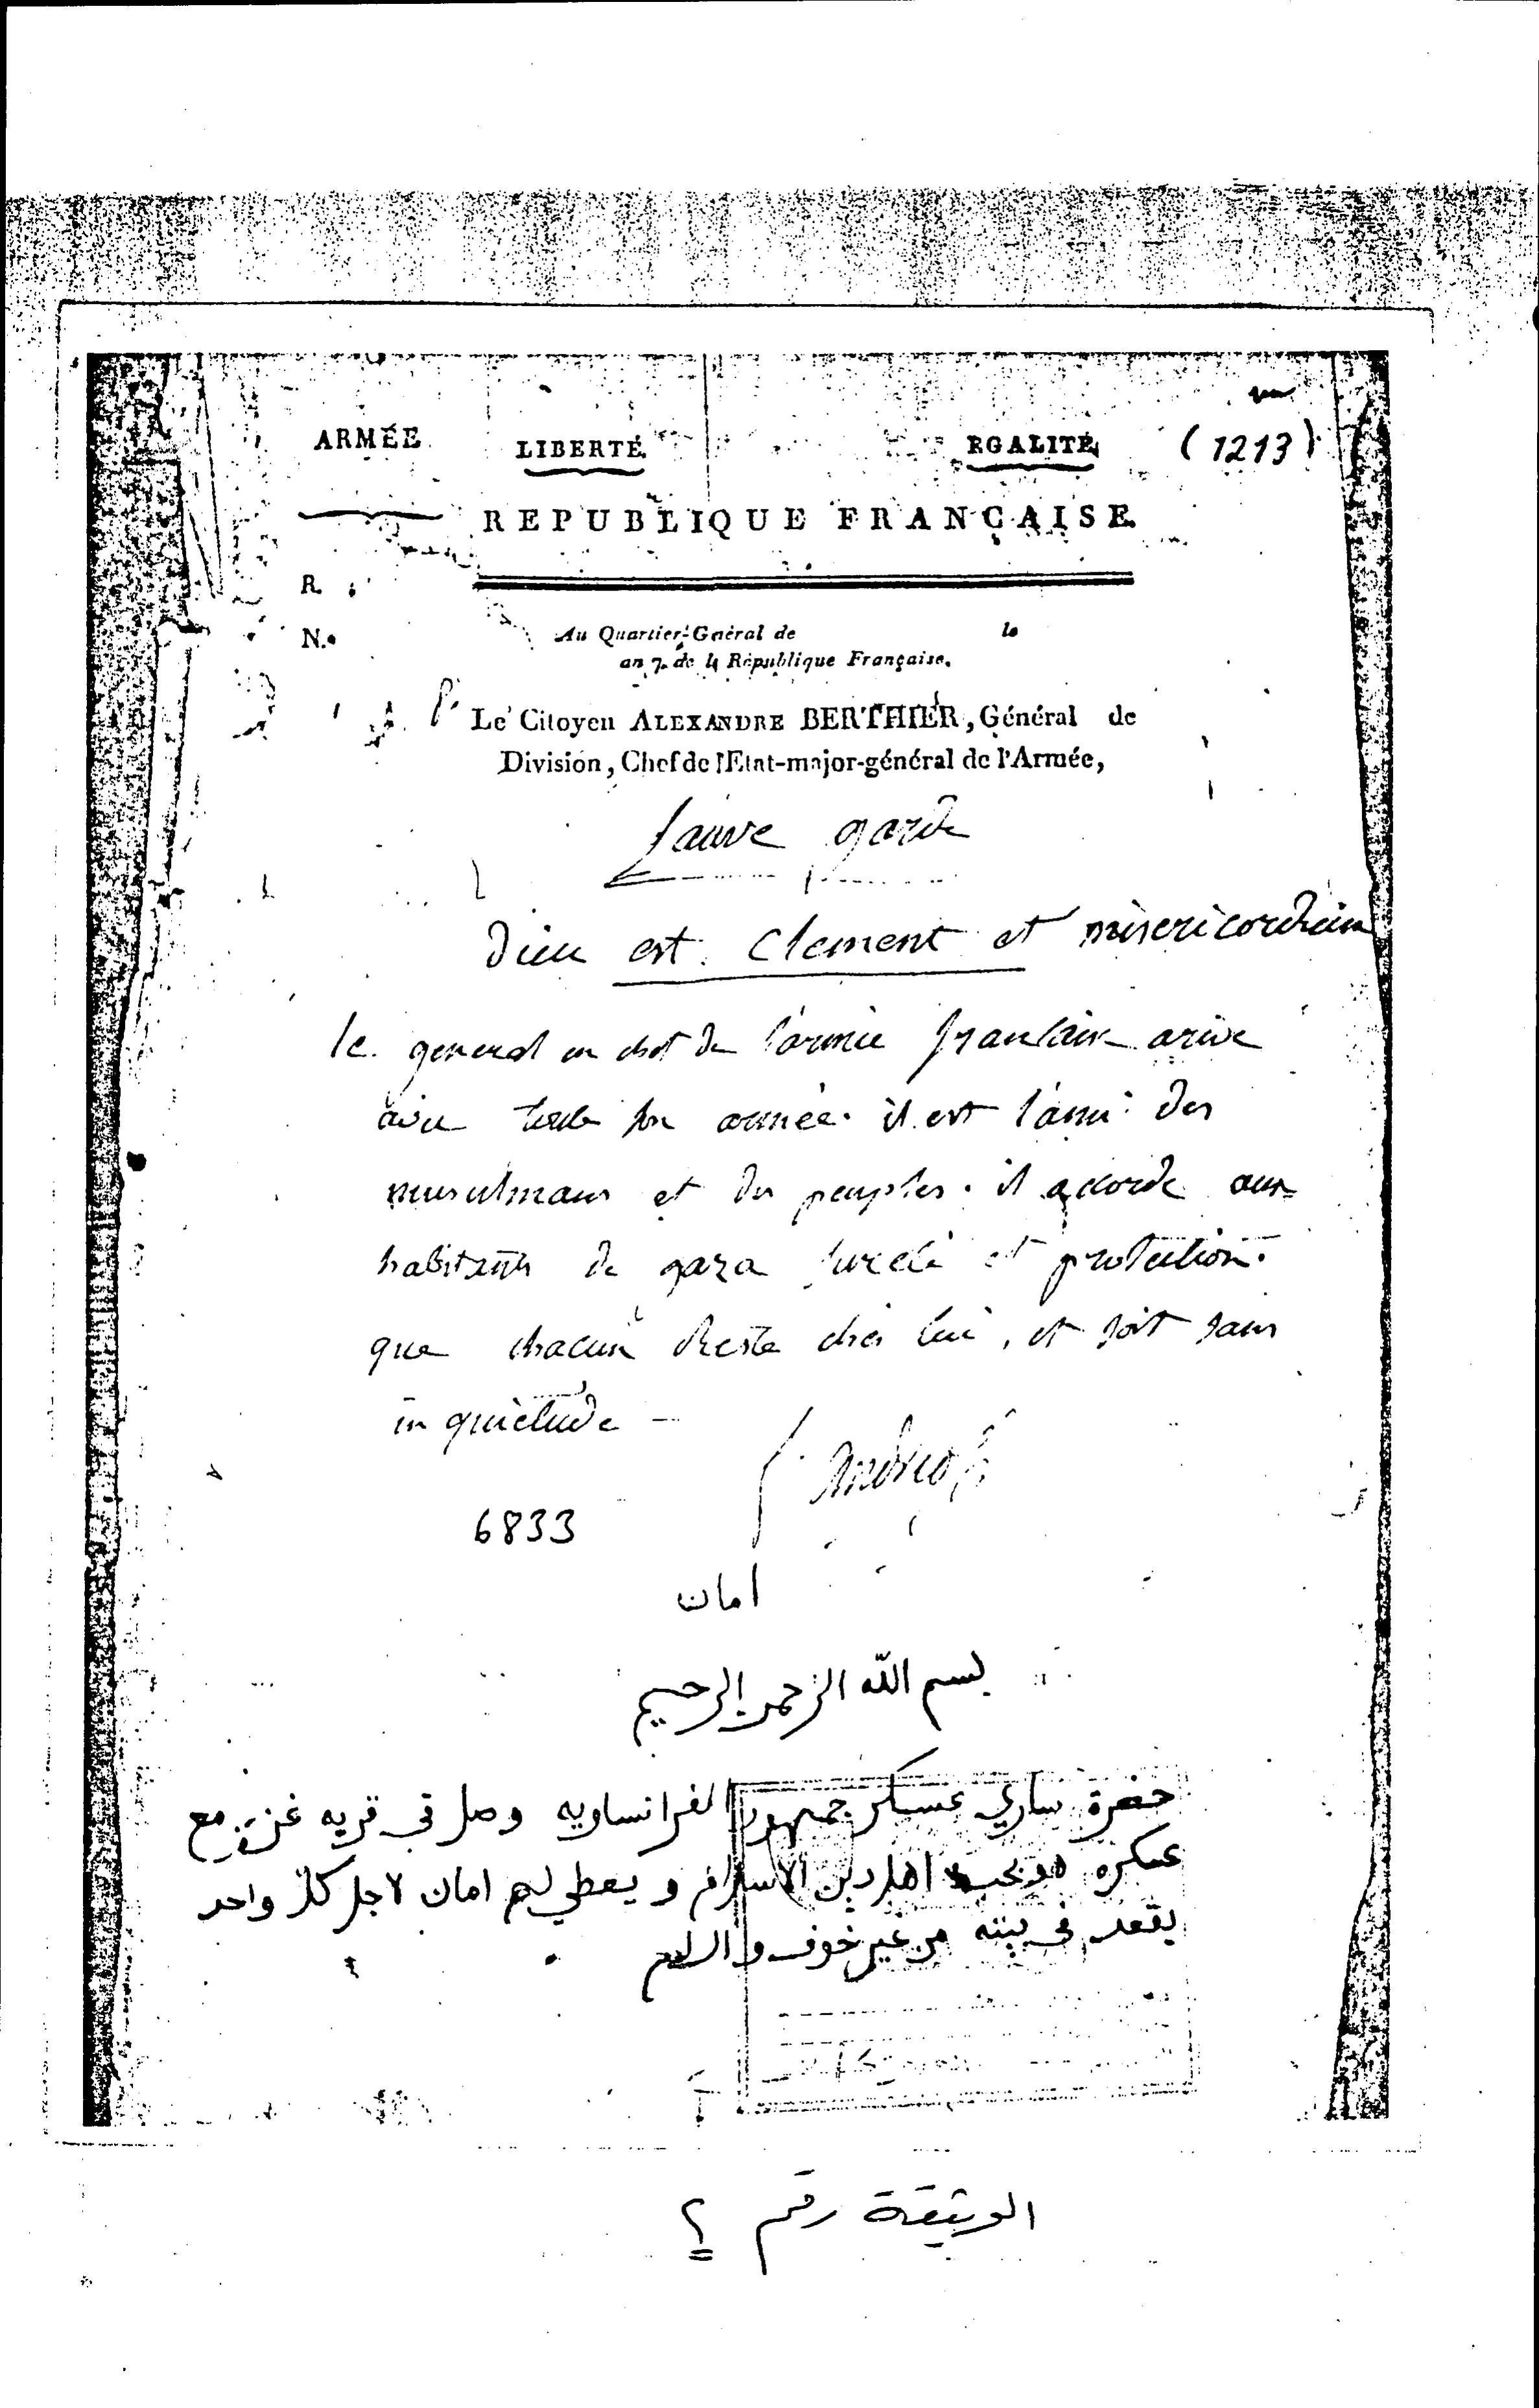 ARMÉE LIBERTÉ. EGALITÉ (1213)
REPUBLIQUE FRANÇAISE.
R.
N.o
Au Quartier-Gnéral de le
an 7. de la République Française.
Le Citoyen ALEXANDRE BERTHIER, Général de
Division, Chef de l'Etat-major-général de l'Armée,
Sauve garde
Dieu est Clement et misericordieux
le general en chef de l'armée française arive
avec toute son armée. il est l'ami des
musulmans et des peuples. il accorde aux
habitants de gaza sureté et protection.
que chacun Reste chés lui, et soit sans
inquiétude
6833
امان
بسم الله الرحمن الرحيم
حضرة ساري عسكر جمهور الفرانساويه وصل في قريه غزة مع
عسكره هو يحب اهل دين الاسلام و يعطي لهم امان لاجل كل واحد
يقعد في بيته من غير خوف والسلام
الوثيقة رقم ٢